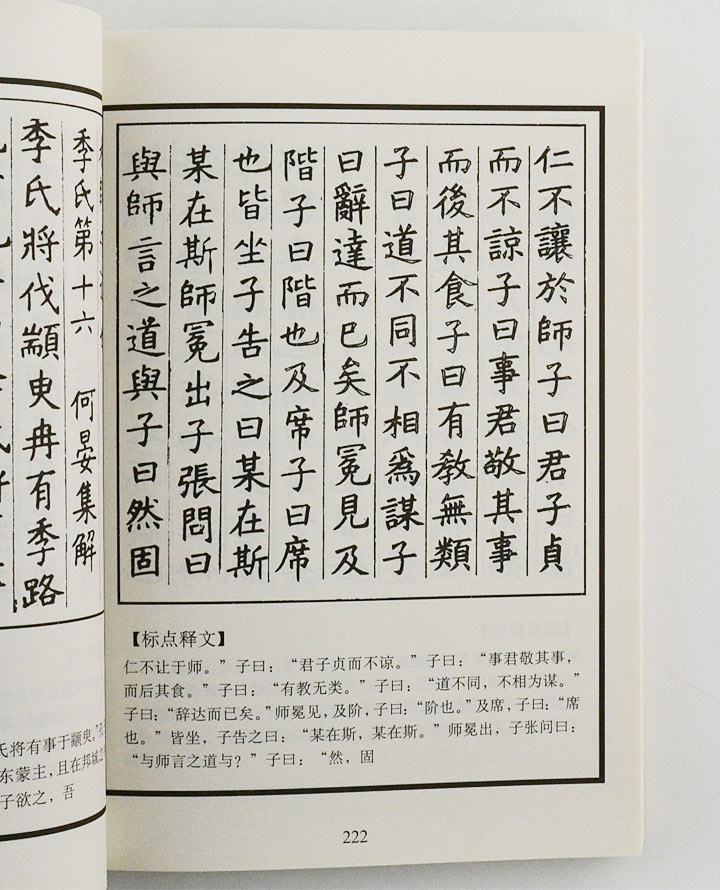 仁不讓於師子曰君子貞
而不諒子曰事君敬其事
而後其食子曰有教無類
子曰道不同不相爲謀子
曰辭達而已矣師冕見及
階子曰階也及席子曰席
也皆坐子告之曰某在斯
某在斯師冕出子張問曰
與師言之道與子曰然固
【标点释文】
仁不让于师。”子曰：“君子贞而不谅。”子曰：“事君敬其事，
而后其食。”子曰：“有教无类。”子曰：“道不同，不相为谋。”
子曰：“辞达而已矣。”师冕见，及阶，子曰：“阶也。”及席，子曰：“席
也。”皆坐，子告之曰：“某在斯，某在斯。”师冕出，子张问曰：
“与师言之道与？”子曰：“然，固
222
季氏第十六 何晏集解
季氏將伐顓臾冉有季路
氏将有事于颛臾。”
东蒙主，且在邦域之
子欲之，吾